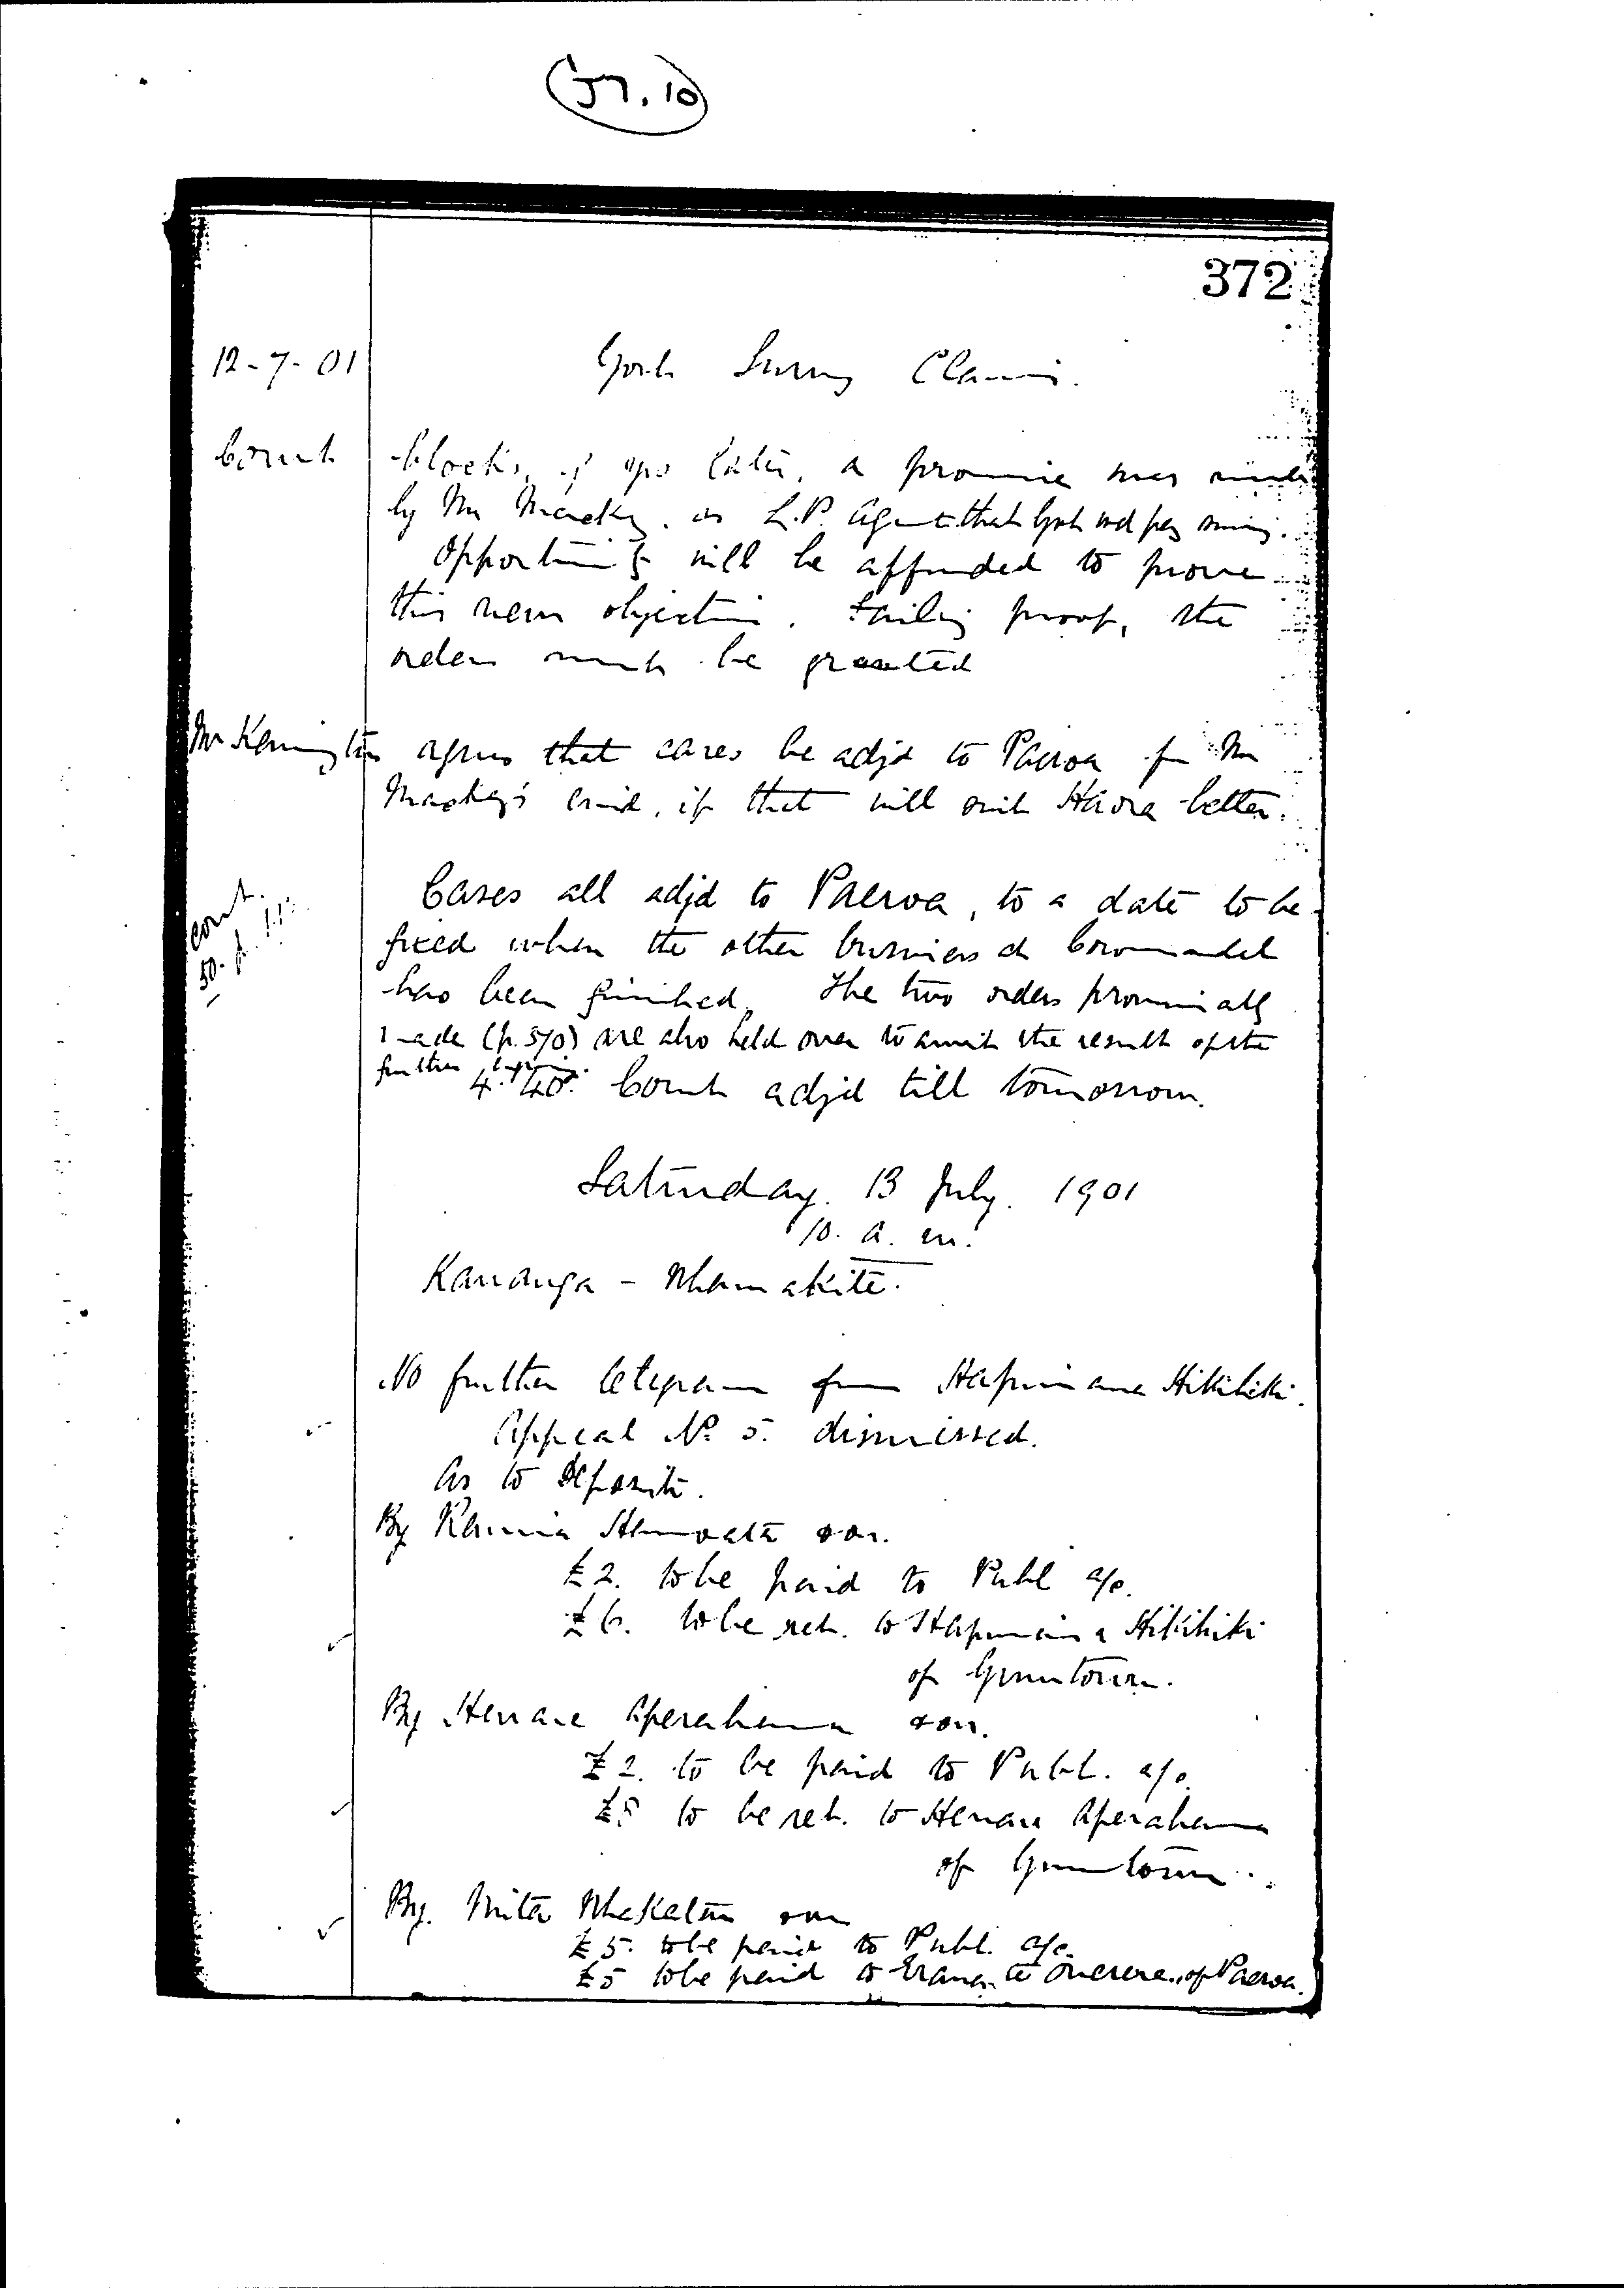 J7.10
372
12-7-01
Govt Survey Claims.
Court
blocks, if ops later, a promise was made
by Mr Mackay, as L.P. Agent that Govt wd pay
Opportunity will be afforded to prove
this new objection. Failing proof, the
orders must be granted
Mr Kennington agrees that cases be adjd to Paeroa for Mr
Mackay's evid, if that will suit Haora better.
Cases all adjd to Paeroa, to a date to be
fixed when the other business at Coromandel
has been finished. The two orders provisionally
made (p. 370) are also held over to await the result of the
further
4.40. Court adjd till tomorrow.
cont.
50. p. 11
Saturday. 13 July. 1901
10. a. m.
Karanga - Whamakite.
No further telegram from Hapimana Hikihiki.
Appeal No 5. dismissed.
As to deposits.
By
£2. to be paid to Publ a/c.
£6. to be ret. to Hapimana Hikihiki
of Gumtown.
By Henare Aperahama + ors.
£2. to be paid to Publ. a/c.
£5 to be ret. to Henare Aperahama
of Gumtown.
By. Mita Whakatau
£5. to be paid to Publ. a/c.
£5 to be paid to of Paeroa.